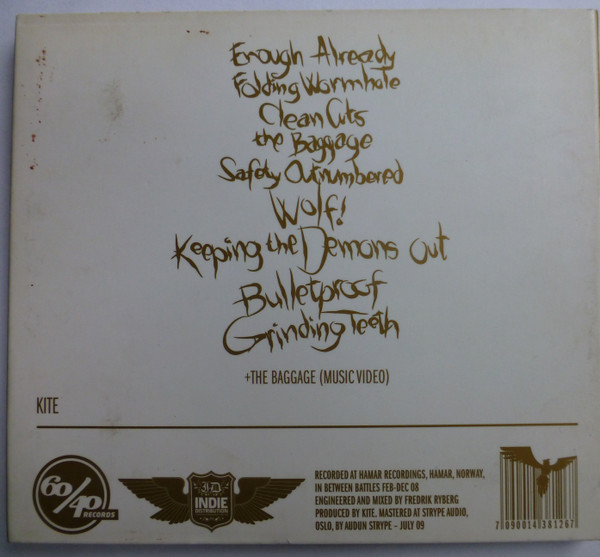 Enough Already
Folding Wormhole
Clean Cuts
the Baggage
Safety Outnumbered
Wolf!
Keeping the Demons Out
Bulletproof
Grinding Teeth
+THE BAGGAGE (MUSIC VIDEO)
KITE
60/40
RECORDS
INDIE
DISTRIBUTION
RECORDED AT HAMAR RECORDINGS, HAMAR, NORWAY,
IN BETWEEN BATTLES FEB-DEC 08
ENGINEERED AND MIXED BY FREDRIK RYBERG
PRODUCED BY KITE. MASTERED AT STRYPE AUDIO,
OSLO, BY AUDUN STRYPE - JULY 09
7 090014 381267